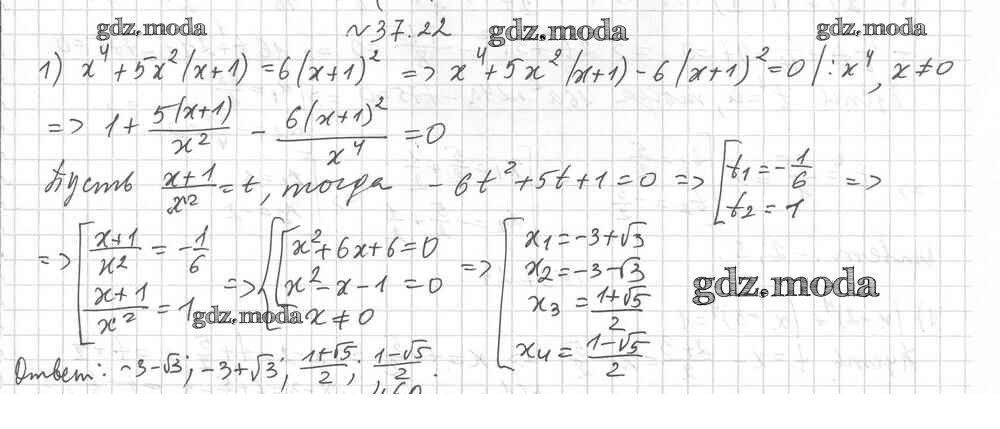 gdz.moda
~37.22
gdz.moda
gdz.moda
1) x⁴+5x²(x+1)=6(x+1)² => x⁴+5x²(x+1)-6(x+1)²=0 |:x⁴, x≠0
=> 1+ 5(x+1)/x² - 6(x+1)²/x⁴ =0
Пусть (x+1)/x² = t, тогда -6t²+5t+1=0 => [t₁=-1/6
t₂=1 =>
=> [(x+1)/x² = -1/6
(x+1)/x² = 1 => {[x²+6x+6=0
x²-x-1=0
x≠0 => [x₁=-3+√3
x₂=-3-√3
x₃=(1+√5)/2
x₄=(1-√5)/2
gdz.moda
gdz.moda
Ответ: -3-√3; -3+√3; (1+√5)/2; (1-√5)/2.